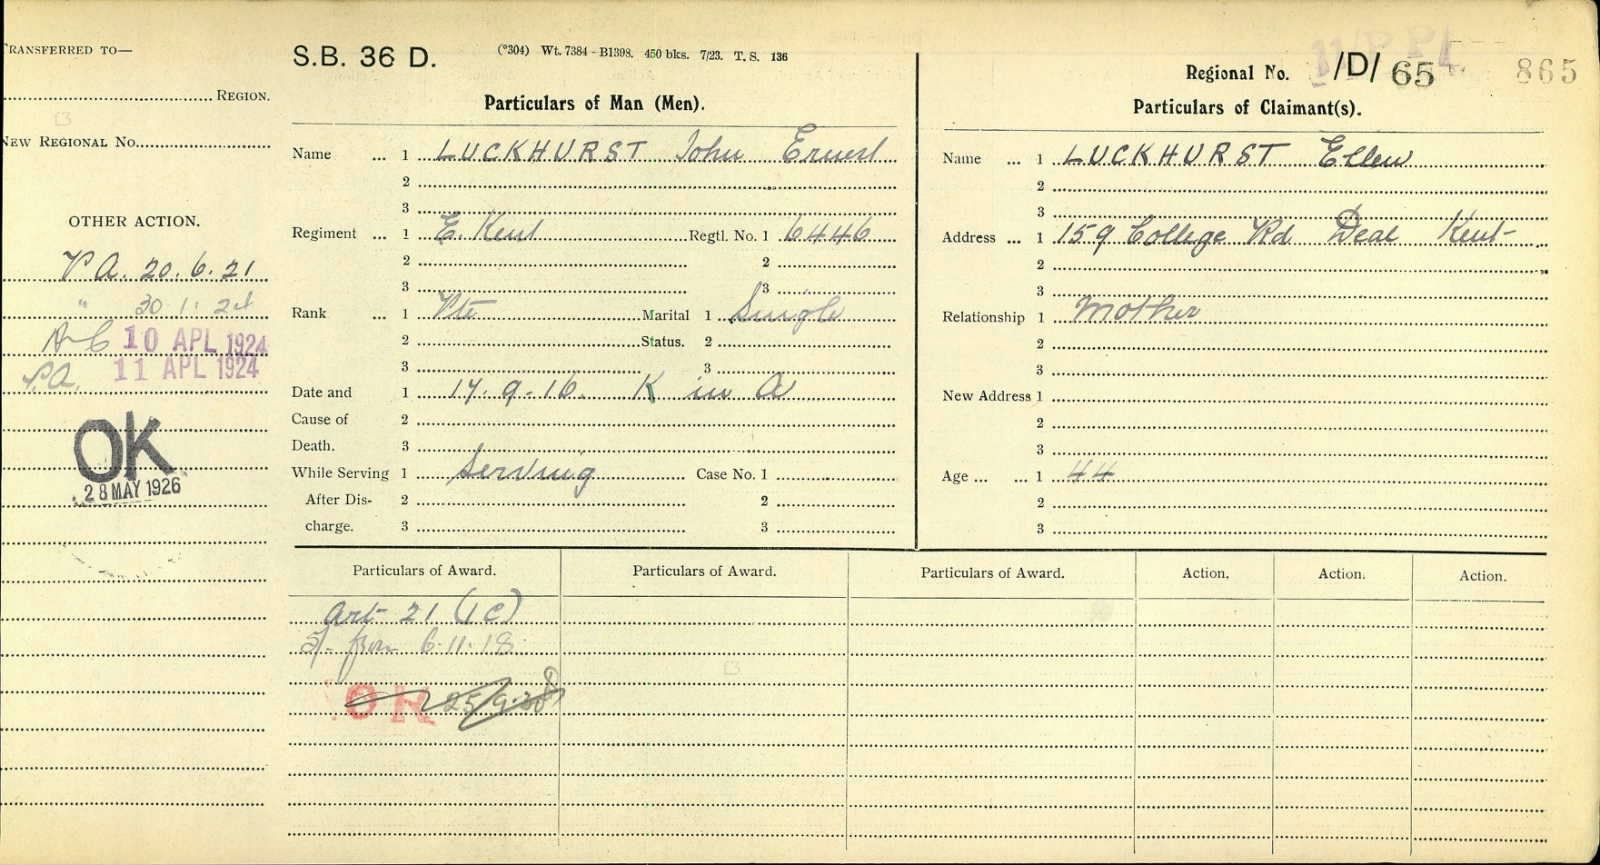 TRANSFERRED TO—
REGION.
NEW REGIONAL NO.
OTHER ACTION.
P A. 20.6.21
" 30 1. 24
10 APL 1924
P.A. 11 APL 1924
OK
28 MAY 1926
S.B. 36 D. (*304) Wt. 7384-B1398. 450 bks. 7/23. T. S. 136
Particulars of Man (Men).
Name ... 1 LUCKHURST John Ernest
2
3
Regiment ... 1 E. Kent Regtl. No. 1 6446
2 2
3 3
Rank ... 1 Pte Marital 1 Single
2 Status. 2
3 3
Date and 1 17.9.16. K in A
Cause of 2
Death. 3
While Serving 1 Serving Case No. 1
After Dis- 2 2
charge. 3 3
Regional No. 11/PPL /D/ 65 865
Particulars of Claimant(s).
Name ... 1 LUCKHURST Ellen
2
3
Address ... 1 159 College Rd Deal Kent
2
3
Relationship 1 Mother
2
3
New Address 1
2
3
Age ... ... 1 44
2
3
Particulars of Award. Particulars of Award. Particulars of Award. Action. Action. Action.
Art 21 (1 C)
5/- from 6.11.18
OK 25/9.28